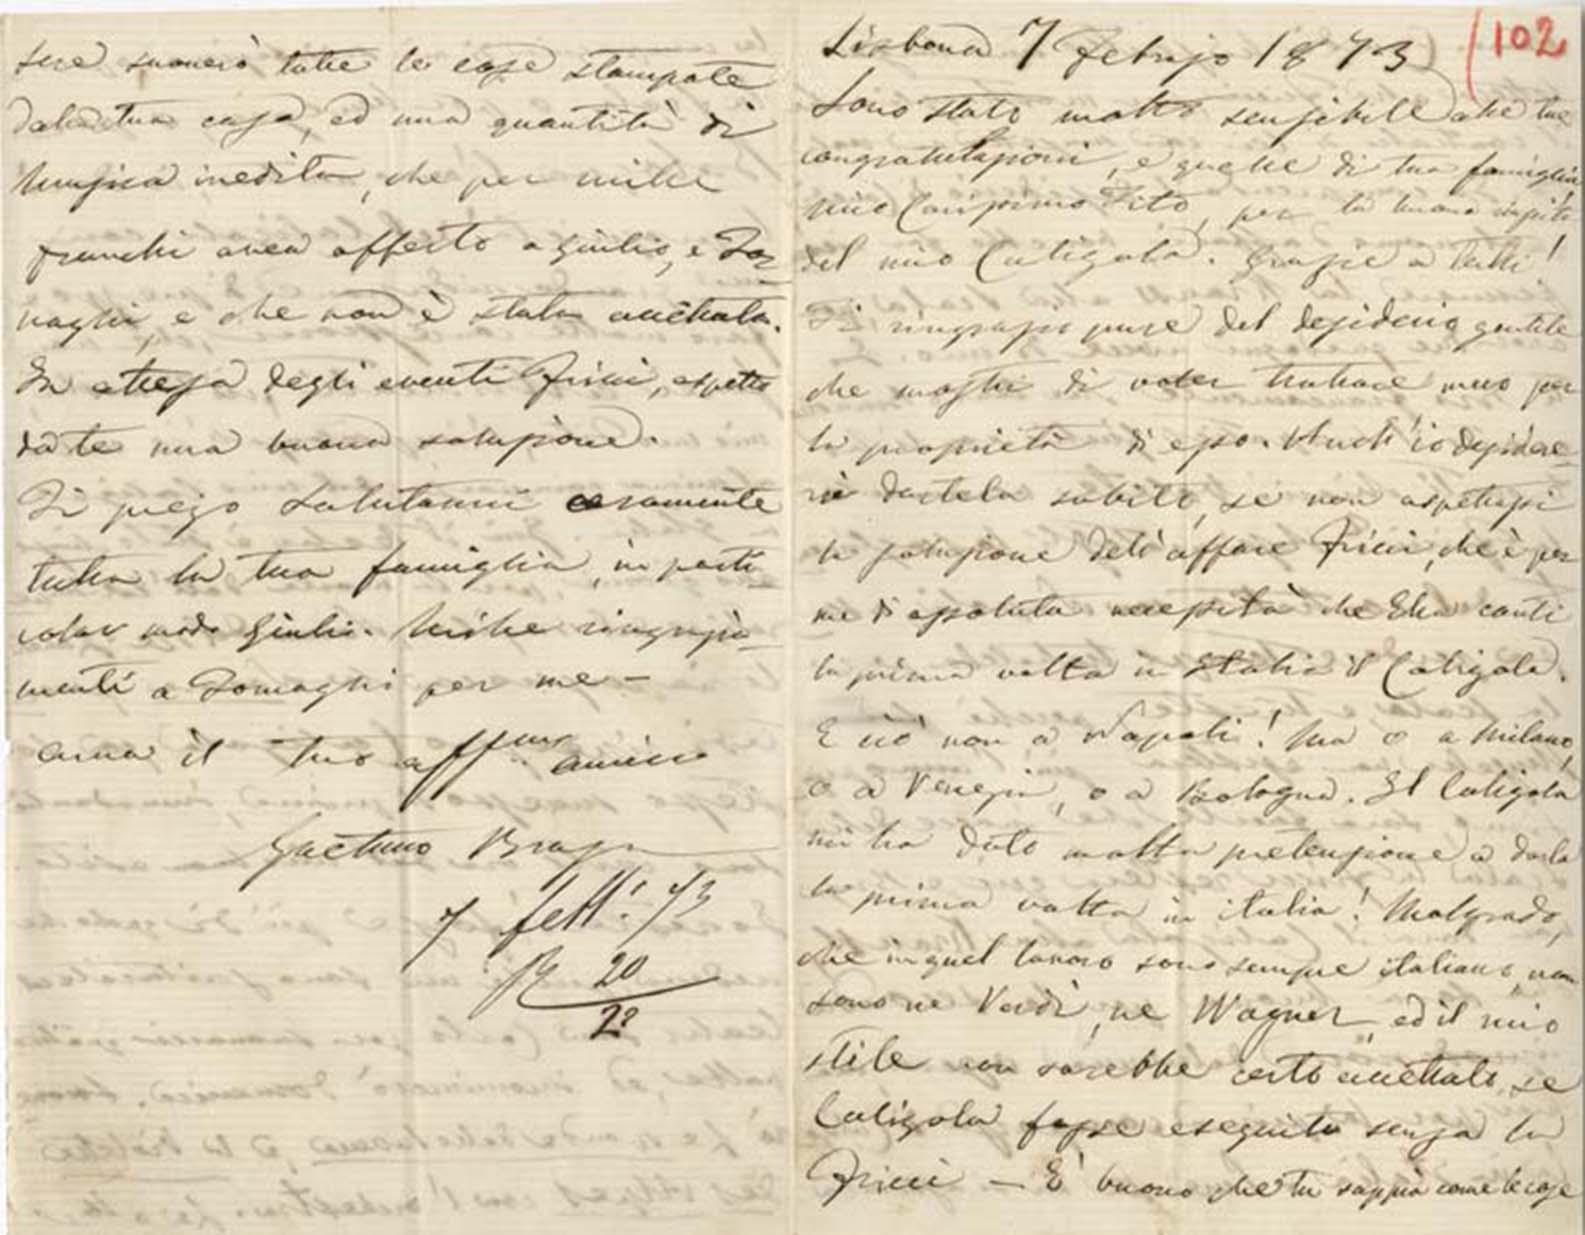 102
Lisbona 7 Febrajo 1873
Sono stato molto sensibile alle tue
congratulazioni, e quelle di tua famiglia,
mio Carissimo Tito, per la buona
del mio Caligola. Grazie a tutti!
Ti ringrazio pure del desiderio gentile
che mostri di voler trattare meco per
la proprietà di esso. Anch'io desidere-
rei dartela subito, se non aspettassi
la soluzione dell'affare Fricci, che è per
me di assoluta necessità che Ella canti
la prima volta in Italia il Caligola.
E ciò non a Napoli! Ma o a Milano,
o a Venezia, o a Bologna. Il Caligola
mi ha dato molta pretenzione a darlo
la prima volta in italia! Malgrado,
che in quel lavoro sono sempre italiano, non
sono ne Verdi, ne Wagner, ed il mio
stile non sarebbe certo accettato, se
Caligola fosse eseguito senza la
Fricci — È buono che tu sappia come le cose
sere suonerò tutte le cose stampate
dalla tua casa, ed una quantità di
Musica inedita, che per mille
franchi avea offerto a Giulio, e Tor-
naghi, e che non è stata accettata.
In attesa degli eventi Fricci, aspetto
da te una buona soluzione.
Ti prego salutarmi caramente
tutta la tua famiglia, in parti-
colar modo Giulio. Mille ringrazia-
menti a Tornaghi per me —
ama il tuo affmo amico
Gaetano Braga
7 febb. 73
R 20
2?